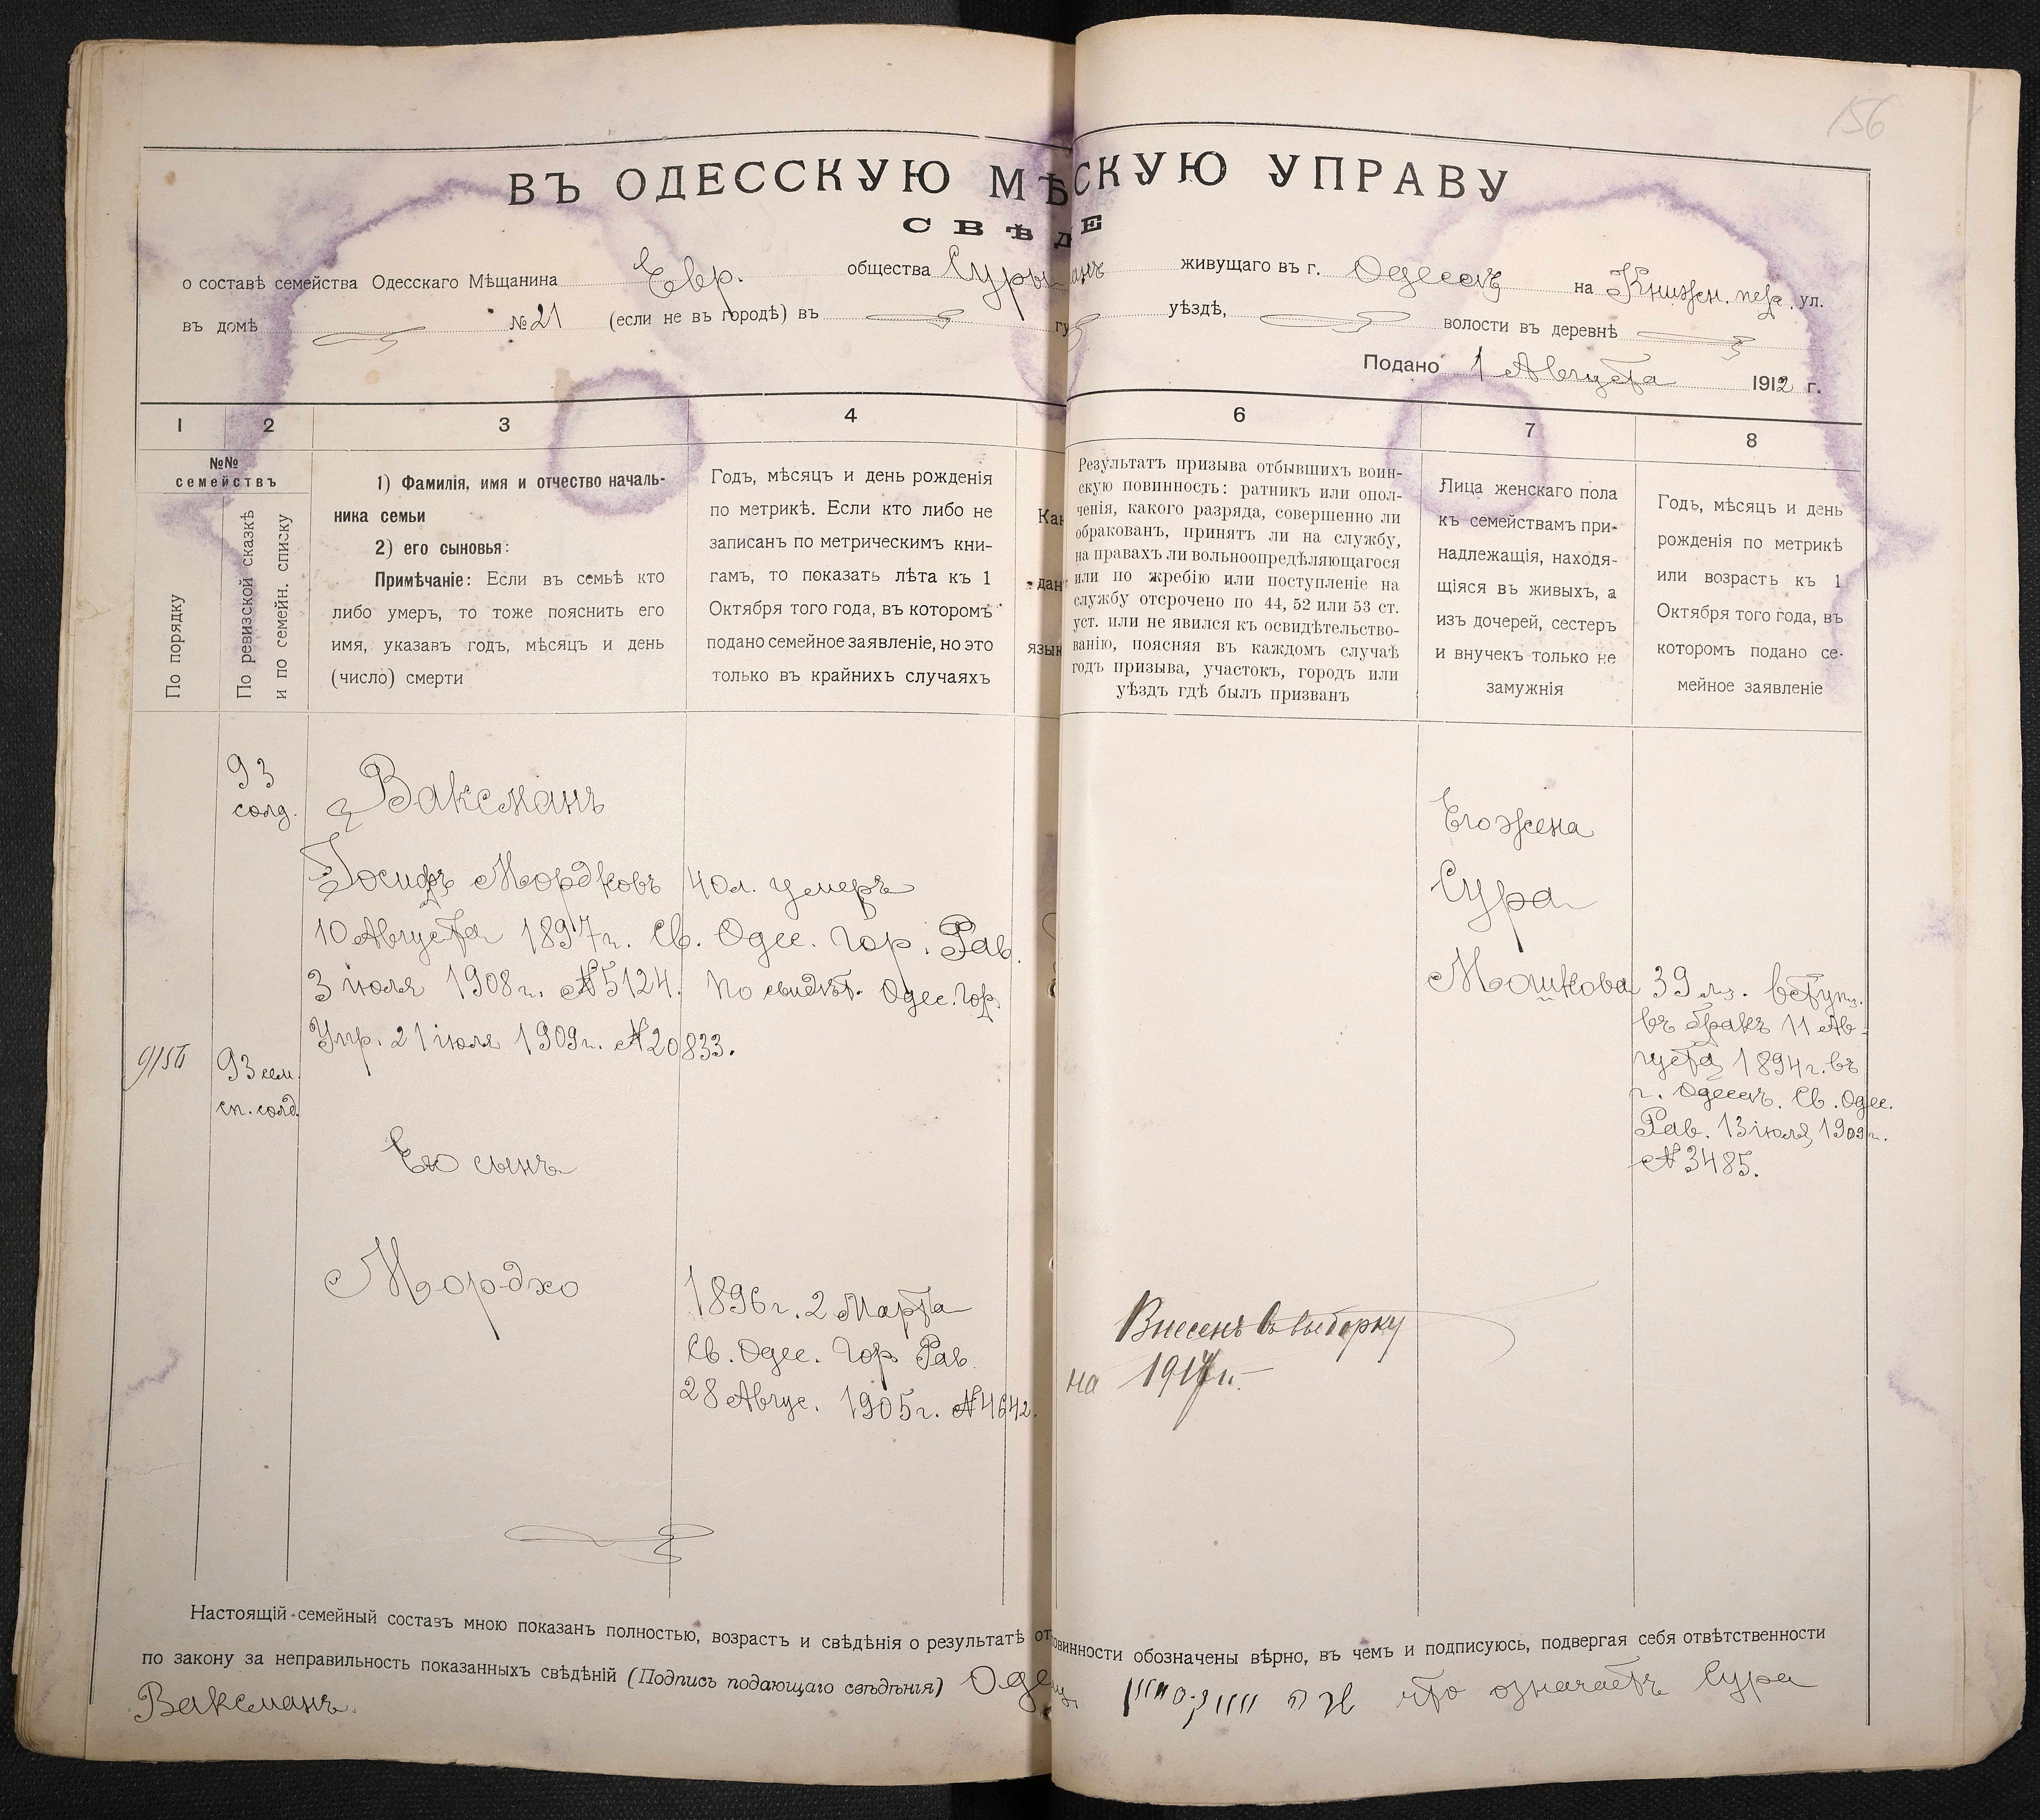 156
ВЪ ОДЕССКУЮ МѢСКУЮ УПРАВУ
СВѢДЕ
о составѣ семейства Одесскаго Мѣщанина Евр. общества Суры живущаго въ г. Одессѣ на Книжн. пер. ул.
въ домѣ № 21 (если не въ городѣ) въ гу уѣздѣ, волости въ деревнѣ
Подано 1 Августа 1912 г.
1 2 3 4 6 7 8
№№
семействъ
По порядку
По ревизской сказкѣ
и по семейн. списку
1) Фамилія, имя и отчество началь-
ника семьи
2) его сыновья:
Примѣчаніе: Если въ семьѣ кто
либо умеръ, то тоже пояснить его
имя, указавъ годъ, мѣсяцъ и день
(число) смерти
Годъ, мѣсяцъ и день рожденія
по метрикѣ. Если кто либо не
записанъ по метрическимъ кни-
гамъ, то показать лѣта къ 1
Октября того года, въ которомъ
подано семейное заявленіе, но это
только въ крайнихъ случаяхъ
Как
дан
язык
Результатъ призыва отбывшихъ воин-
скую повинность: ратникъ или опол-
ченія, какого разряда, совершенно ли
обракованъ, принятъ ли на службу,
на правахъ ли вольноопредѣляющагося
или по жребію или поступленіе на
службу отсрочено по 44, 52 или 53 ст.
уст. или не явился къ освидѣтельство-
ванію, поясняя въ каждомъ случаѣ
годъ призыва, участокъ, городъ или
уѣздъ гдѣ былъ призванъ
Лица женскаго пола
къ семействамъ при-
надлежащія, находя-
щіяся въ живыхъ, а
изъ дочерей, сестеръ
и внучекъ только не
замужнія
Годъ, мѣсяцъ и день
рожденія по метрикѣ
или возрастъ къ 1
Октября того года, въ
которомъ подано се-
мейное заявленіе
93
солд.
Ваксманъ
Іосифъ Мордковъ 40 л. умеръ
10 Августа 1897 г. Св. Одес. Гор. Рав.
3 іюля 1908 г. № 5124. По свидѣт. Одес. Гор.
Упр. 21 іюля 1909 г. № 20833.
93 сем.
сп. солд.
Его сынъ
Мордхо
1896 г. 2 Марта
Св. Одес. Гор Рав.
28 Авгус. 1905 г. № 4642.
Внесенъ въ выборку
на 1917 г.
Его жена
Сура
Мошкова
39 л. вступ.
въ бракъ 11 Ав-
густа 1894 г. въ
г. Одессѣ. Св. Одес.
Рав. 13 іюля 1909 г.
№ 3485.
Настоящій семейный составъ мною показанъ полностью, возрастъ и свѣдѣнія о результатѣ от овинности обозначены вѣрно, въ чемъ и подписуюсь, подвергая себя отвѣтственности
по закону за неправильность показанныхъ свѣдѣній (Подпись подающаго свѣдѣнія) что означаетъ Сура
Ваксманъ.